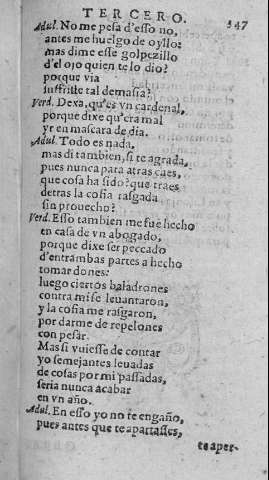 TERCERO.
347
Adul. No me pesa d'esso no,
antes me huelgo de oyllo:
mas dime esse golpezillo
d'el ojo quien te lo dio?
porque via
suffriste tal demasia?
Verd. Dexa, qu'es vn cardenal,
porque dixe qu'era mal
yr en mascara de dia.
Adul. Todo es nada,
mas di tambien, si te agrada,
pues nunca para atras caes,
que cosa ha sido? que traes
detras la cofia rasgada
sin prouecho?
Verd. Esso tambien me fue hecho
en casa de vn abogado,
porque dixe ser peccado
d'entrambas partes a hecho
tomar dones:
luego ciertos baladrones
contra mi se leuantaron,
y la cofia me rasgaron,
por darme de repelones
con pesar.
Mas si vuiesse de contar
yo semejantes leuadas
de cosas por mi passadas,
seria nunca acabar
en vn año.
Adul. En esso yo no te engaño,
pues antes que te apartasses,
te aper-